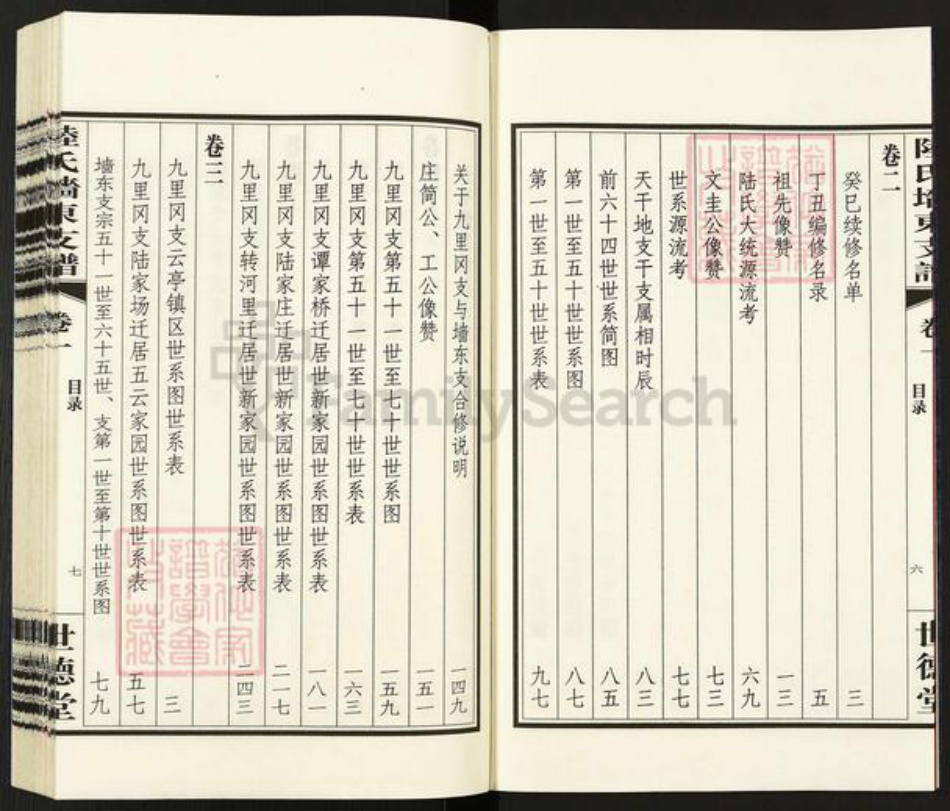 陸氏墙東支譜
卷一
目录
六
世德堂
卷二
癸巳续修名单 三
丁丑编修名录 五
祖先像赞 一三
陆氏大统源流考 六九
文圭公像赞 七三
世系源流考 七七
天干地支干支属相时辰 八三
前六十四世世系简图 八五
第一世至五十世世系图 八七
第一世至五十世世系表 九七
关于九里冈支与墙东支合修说明 一四九
庄简公、工公像赞 一五一
九里冈支第五十一世至七十世世系图 一五九
九里冈支第五十一世至七十世世系表 一六三
九里冈支谭家桥迁居世新家园世系图世系表 一八一
九里冈支陆家庄迁居世新家园世系图世系表 二一七
九里冈支转河里迁居世新家园世系图世系表 二四三
卷三
九里冈支云亭镇区世系图世系表 三
九里冈支陆家场迁居五云家园世系图世系表 五七
墙东支宗五十一世至六十五世、支第一世至第十世世系图 七九
陸氏墙東支譜
卷一
目录
七
世德堂
FamilySearch